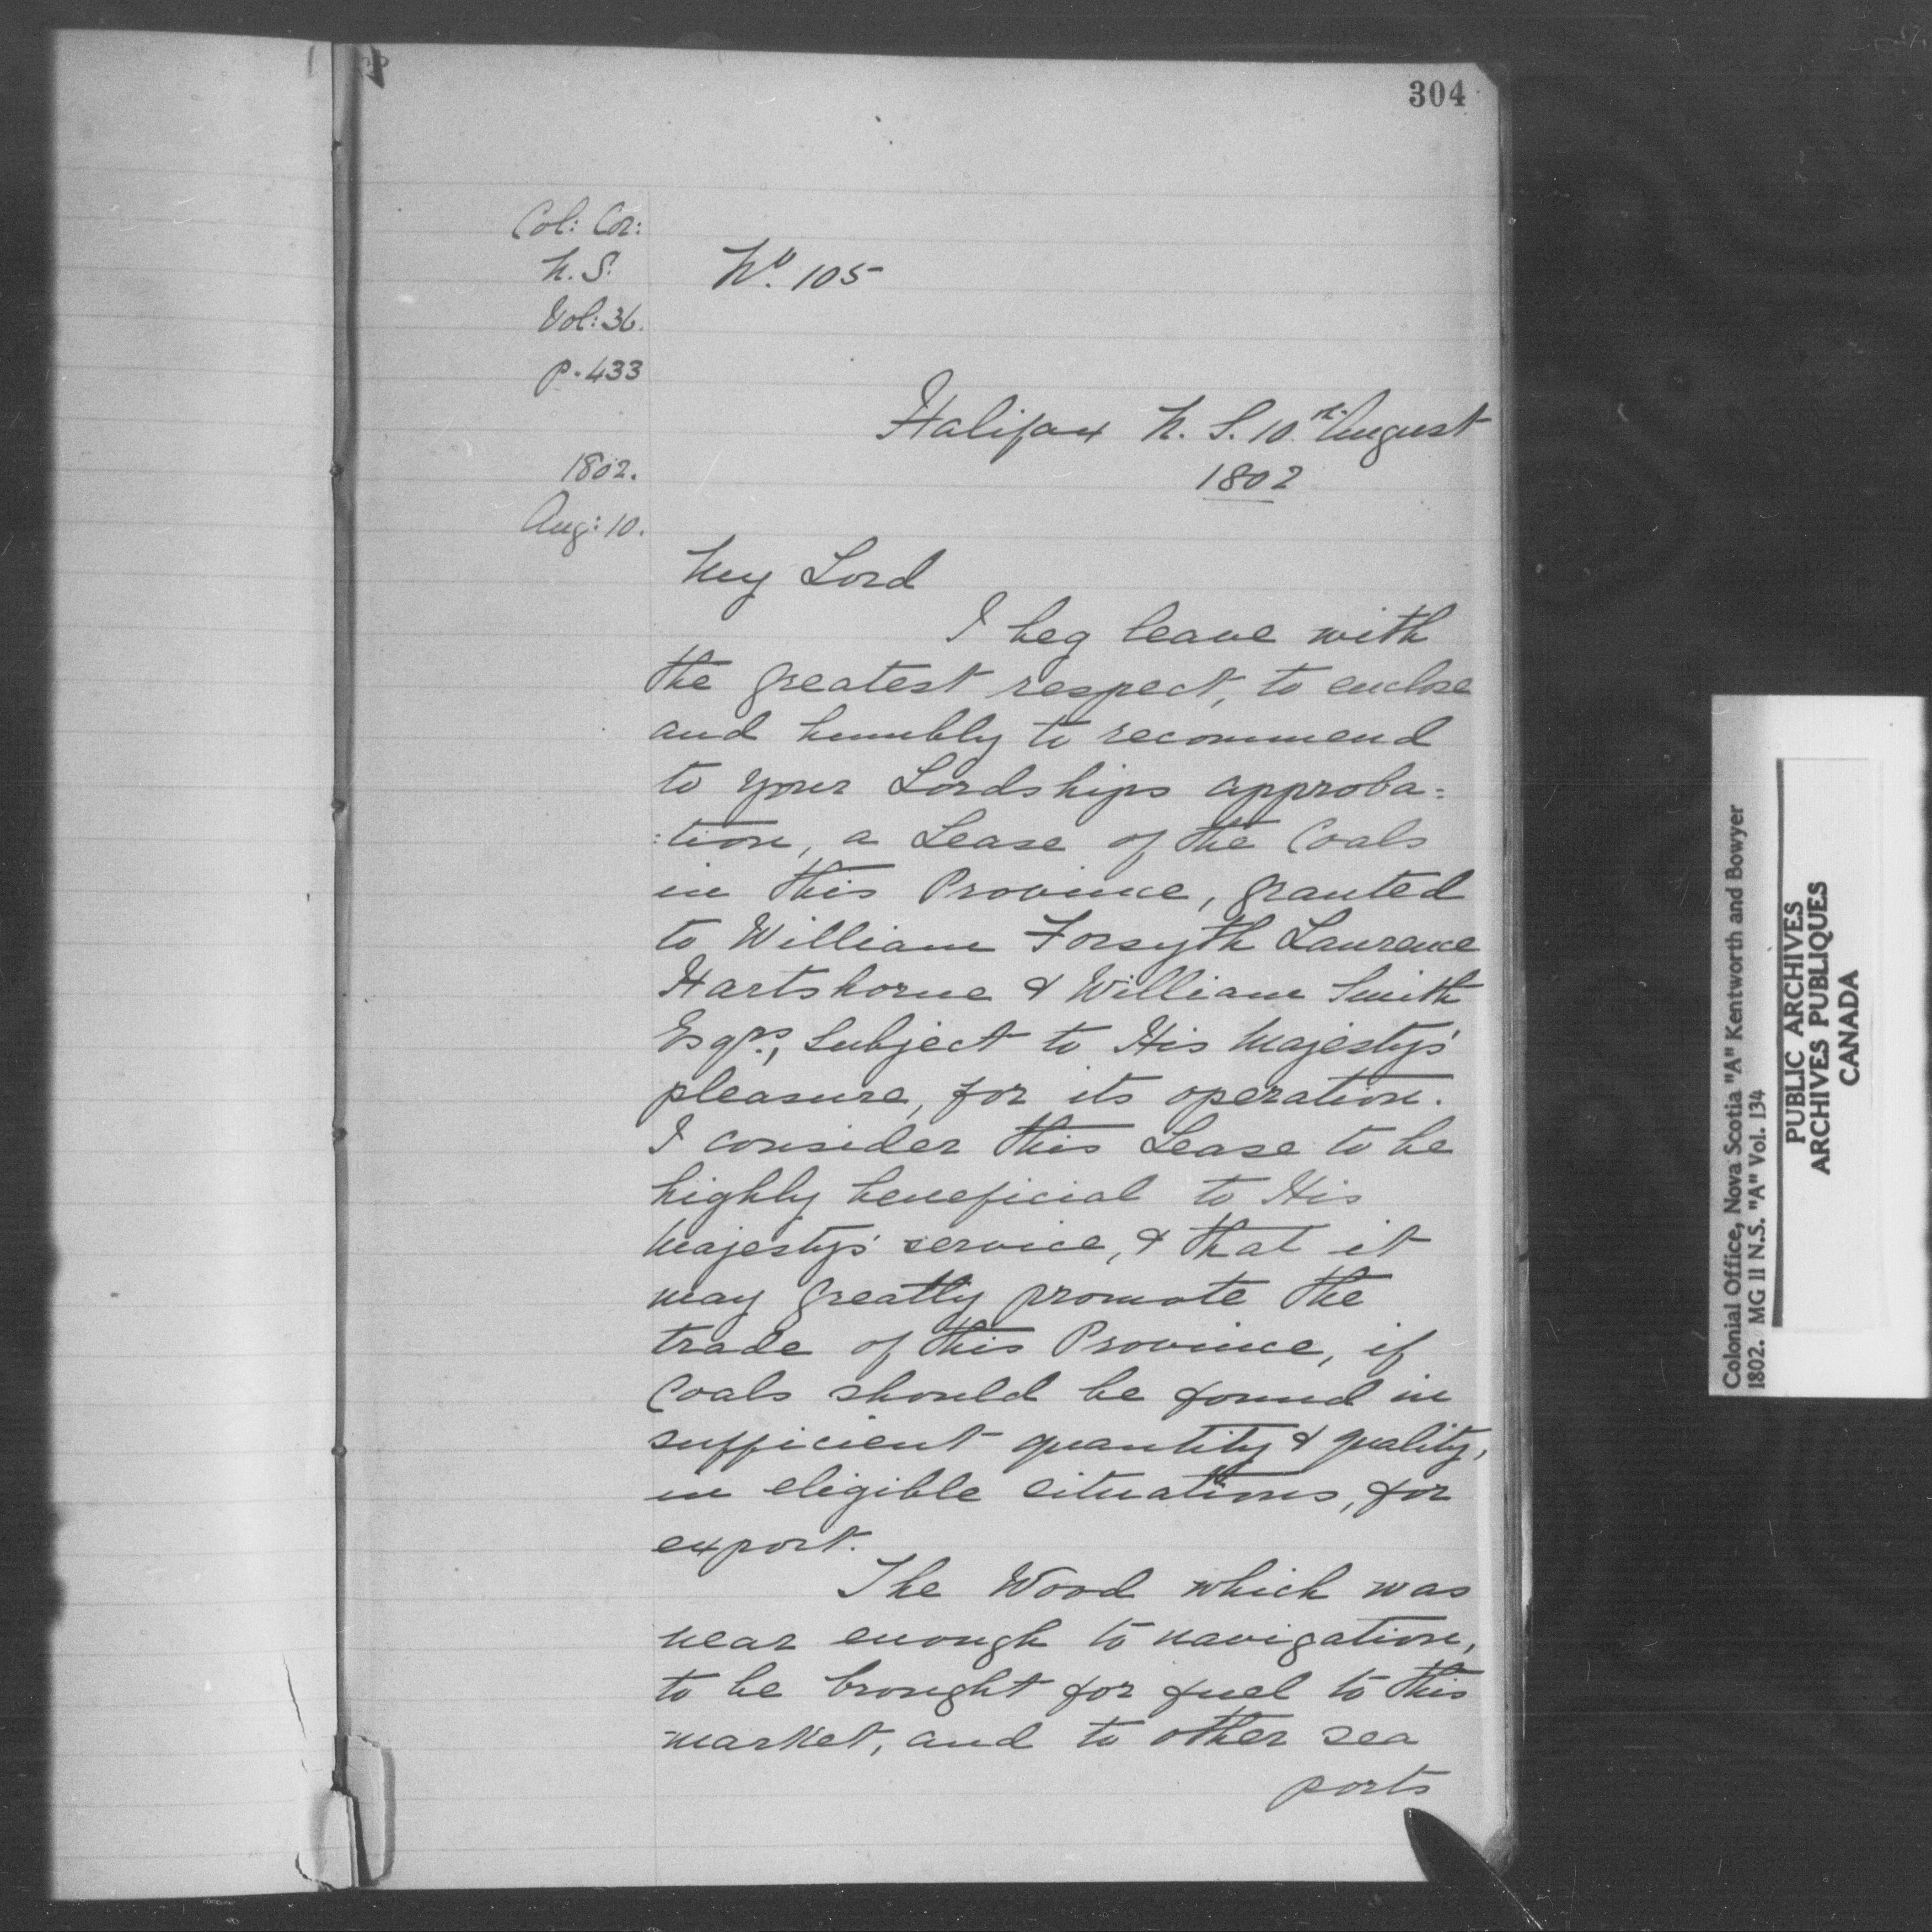 304
Col: Cor:
N. S.
Vol: 36.
P. 433
No. 105
Halifax N. S. 10th August
1802
1802.
Aug: 10.
My Lord
I beg leave with
the greatest respect, to enclose
and humbly to recommend
to your Lordships approba=
:tion, a Lease of the Coals
in this Province, granted
to William Forsyth Laurence
Hartshorne & William Smith
Esqrs., Subject to His Majesty's
pleasure, for its operation.
I consider this Lease to be
highly beneficial to His
Majesty's service, & that it
may greatly promote the
trade of this Province, if
Coals should be found in
sufficient quantity & quality,
in eligible situations, for
export.
The Wood which was
near enough to navigation,
to be brought for fuel to this
market, and to other sea
ports
Colonial Office, Nova Scotia "A" Kentworth and Bowyer
1802. MG 11 N.S. "A" Vol. 134
PUBLIC ARCHIVES
ARCHIVES PUBLIQUES
CANADA